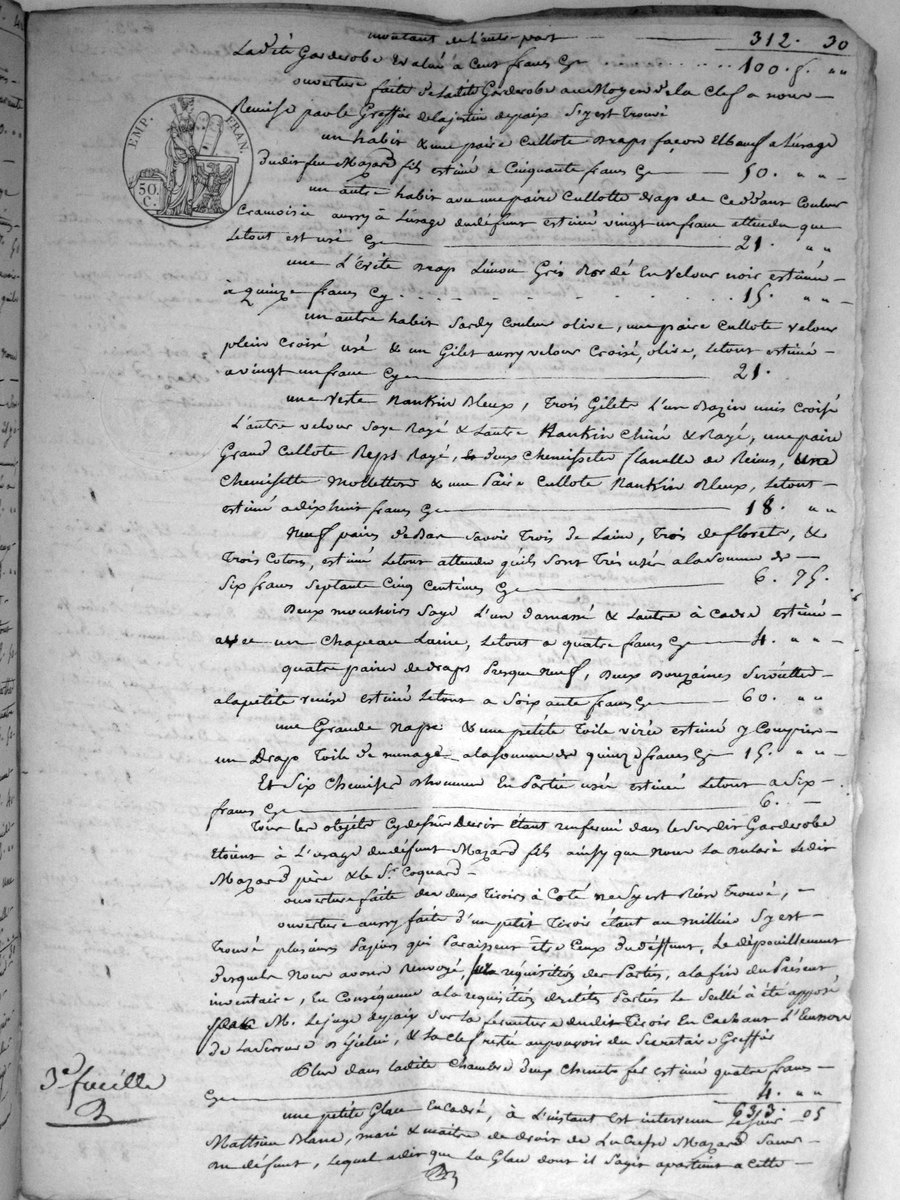 montant de l'autre part 312. 30
Ladite Garderobe Evalué a Cent francs Cy 100. f. " "
ouverture faite de Ladite Garderobe au Moyen de la Clef a nous
Remise par le Greffier de la justice de paix S'y est Trouvé
un habit & une paire Cullote Draps façon Elbeuf a L'usage
EMP. FRAN.
50. C.
dudit feu Mazard fils estimé a Cinquante francs Cy 50. " "
un autre habit avec une paire Cullotte drap de Couleur
Cramoisie aussy à L'usage du défunt estimé vingt un franc attendu que
Le tout est usé Cy 21. " "
une L'évite drap Limon Gris Bordé En velour noir estimée
à Quinze francs Cy 15. " "
un autre habit Couleur olive, une paire Cullote velour
plein Croisé usé & un Gilet aussy velour Croisé, olive, Le tout estimé
a vingt un franc Cy 21.
une veste Nankin Bleux, Trois Gilets L'un Bazin unis Croisé
L'autre velour Soye Rayé & L'autre Nankin Chiné & Rayé, une paire
Grand Cullote Reps Rayé, deux Chemissetes flanelle de Reims, une
Chemissette Molletton & une Paire Cullote Nankin Bleux, Le tout
estimé a dix huit francs Cy 18. " "
Neuf paires de Bas Savoir Trois de Laine, Trois de floret, &
Trois Coton, estimé Le tout attendu qu'ils Sont Très usés a la Somme de
Six francs Septante Cinq Centimes Cy 6. 75.
Deux mouchoirs Soye L'un damassé & L'autre à Cadre estimé
avec un Chapeau Laine, Le tout a quatre francs Cy 4. " "
quatre paires de draps Presque Neuf, Deux Douzaines Serviettes
a la petite Venise estimé Le tout a Soixante francs Cy 60. " "
une Grande Nape & une petite Toile estimé y Compris
un Drap Toile de menage a la Somme de quinze francs Cy 15. " "
Et Six Chemises D'homme En Partie usée estimé Le tout a Six
francs Cy 6.
Tous les objets Cy dessus Decrit étant renfermé dans le Susdit Garderobe
étoient à L'usage du défunt Mazard fils ainsy que Nous La déclaré Ledit
Mazard père & le Sr. Coquard.
ouverture faite des deux Tiroirs à Coté ne S'y est Rien Trouvé,
ouverture aussy faite d'un petit Tiroir étant au millieu S'y est
Trouvé plusieurs Papiers qui Paraissent être Ceux du Déffunt, Le dépouillement
desquels Nous avons Renvoyé, a la réquisition des Parties, a la fin du Présent
inventaire, En Conséquence a la requisition desdites Parties Le Scellé à été apposé
par M. Le juge de paix Sur La fermeture dudit Tiroir En Cachant L'Entrée
de La Serrure D'icelui, & La Clef resté au pouvoir du Secretaire Greffier
Plus dans Ladite Chambre deux Chenets fer estimé quatre francs
Cy 4. " "
3e. feuille
633. 05
une petite Glace Encadré, à L'instant Est intervenu Le Sieur
Mathieu Blanc, mari & maitre de droit de Mazard Sœur
du défunt, Lequel a dit que La Glace dont il S'agit apartient a Cette